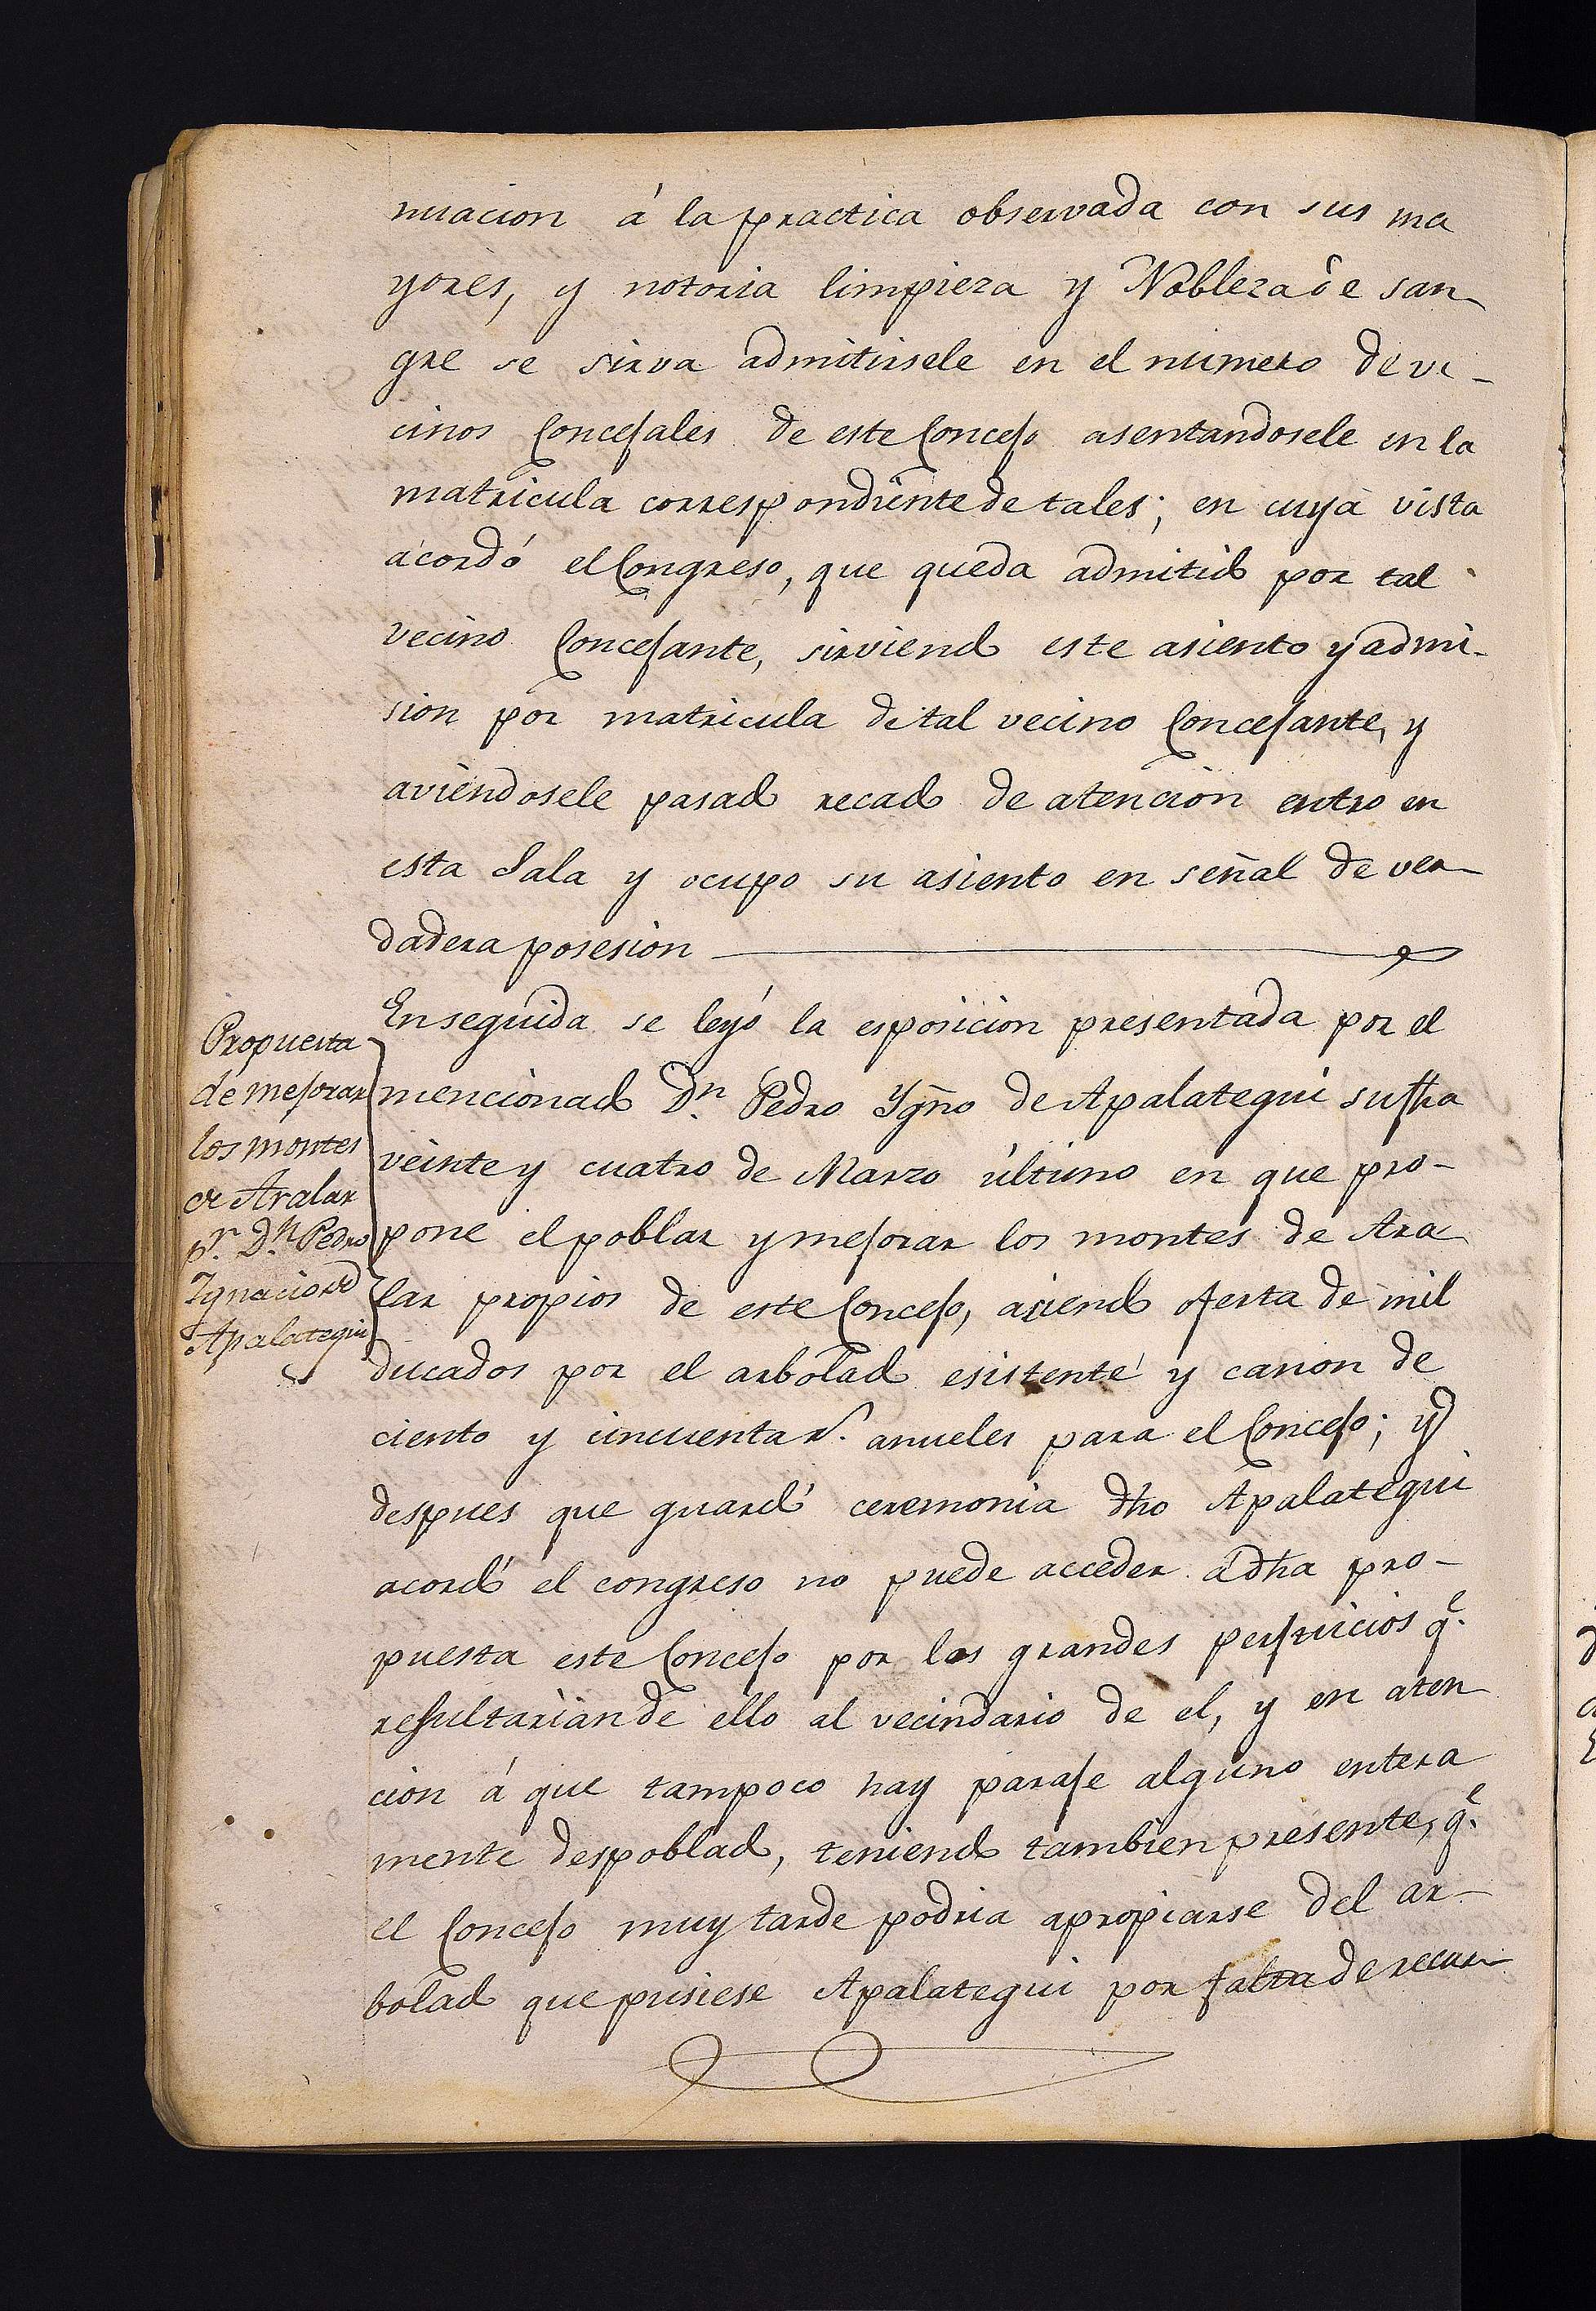 nuacion á la practica observada con sus ma
yores, y notoria limpieza y Nobleza de san
gre se sirva admitirsele en el numero de ve-
cinos Concejales de este Concejo asentandosele en la
matricula correspondiente de tales; en cuya vista
acordó el Congreso, que queda admitido por tal
vecino Concejante, sirviendo este asiento y admi-
sion por matricula de tal vecino Concejante, y
aviendosele pasado recado de atencion entro en
esta Sala y ocupo su asiento en señal de ver
dadera posesion
Propuesta
de mejorar
los montes
de Aralar
pr. Dn. Pedro
Ignacio de
Apalategui
Enseguida se leyó la esposicion presentada por el
mencionado Dn. Pedro Ygño de Apalategui su fha
veinte y cuatro de Marzo último en que pro-
pone el poblar y mejorar los montes de Ara
lar propios de este Concejo, aciendo oferta de mil
ducados por el arbolado esistente y canon de
ciento y cincuenta rs. anueles para el Concejo; y
despues que guardó ceremonia dho Apalategui
acordó el congreso no puede acceder á dha pro-
puesta este Concejo por los grandes perjuicios qe.
resultarian de ello al vecindario de el, y en aten
cion á que tampoco hay paraje alguno entera
mente despoblado, teniendo tambien presente, qe.
el Concejo muy tarde podria apropiarse del ar-
bolado que pusiese Apalategui por falta de recur